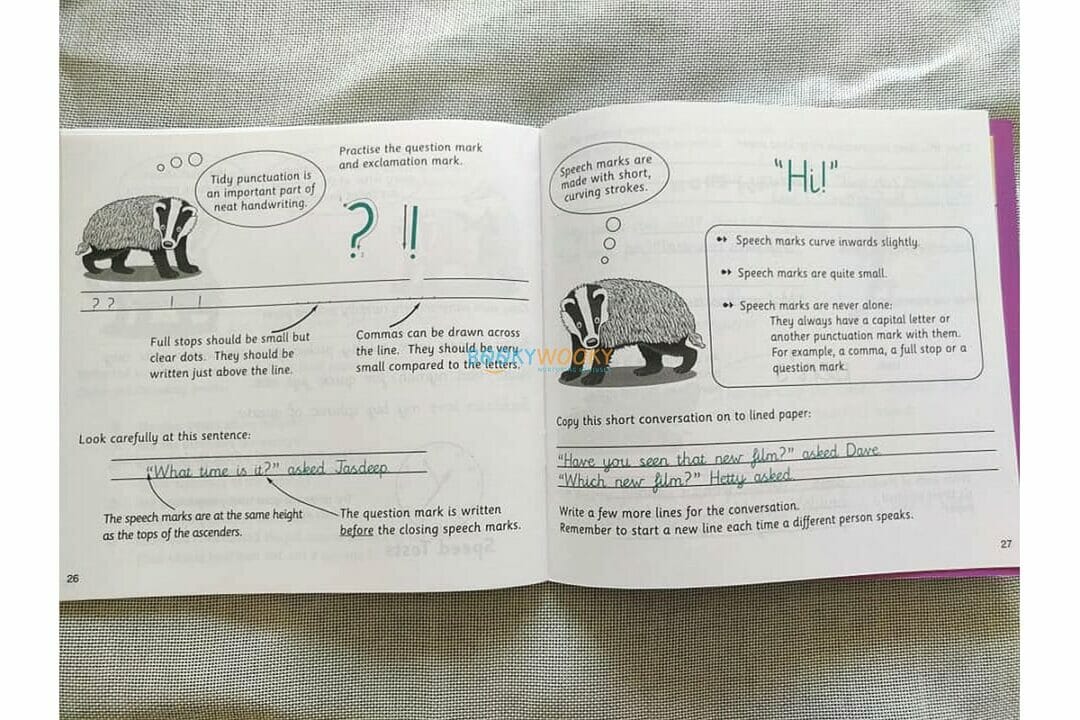 Tidy punctuation is
an important part of
neat handwriting.
Practise the question mark
and exclamation mark.
? !
? ? ! !
Full stops should be small but
clear dots. They should be
written just above the line.
Commas can be drawn across
the line. They should be very
small compared to the letters.
Look carefully at this sentence:
“What time is it?” asked Jasdeep.
The speech marks are at the same height
as the tops of the ascenders.
The question mark is written
before the closing speech marks.
26
Speech marks are
made with short,
curving strokes.
“Hi!”
Speech marks curve inwards slightly.
Speech marks are quite small.
Speech marks are never alone:
They always have a capital letter or
another punctuation mark with them.
For example, a comma, a full stop or a
question mark.
Copy this short conversation on to lined paper:
“Have you seen that new film?” asked Dave.
“Which new film?” Hetty asked.
Write a few more lines for the conversation.
Remember to start a new line each time a different person speaks.
27
BOOKYWOOKY
Speed Tests